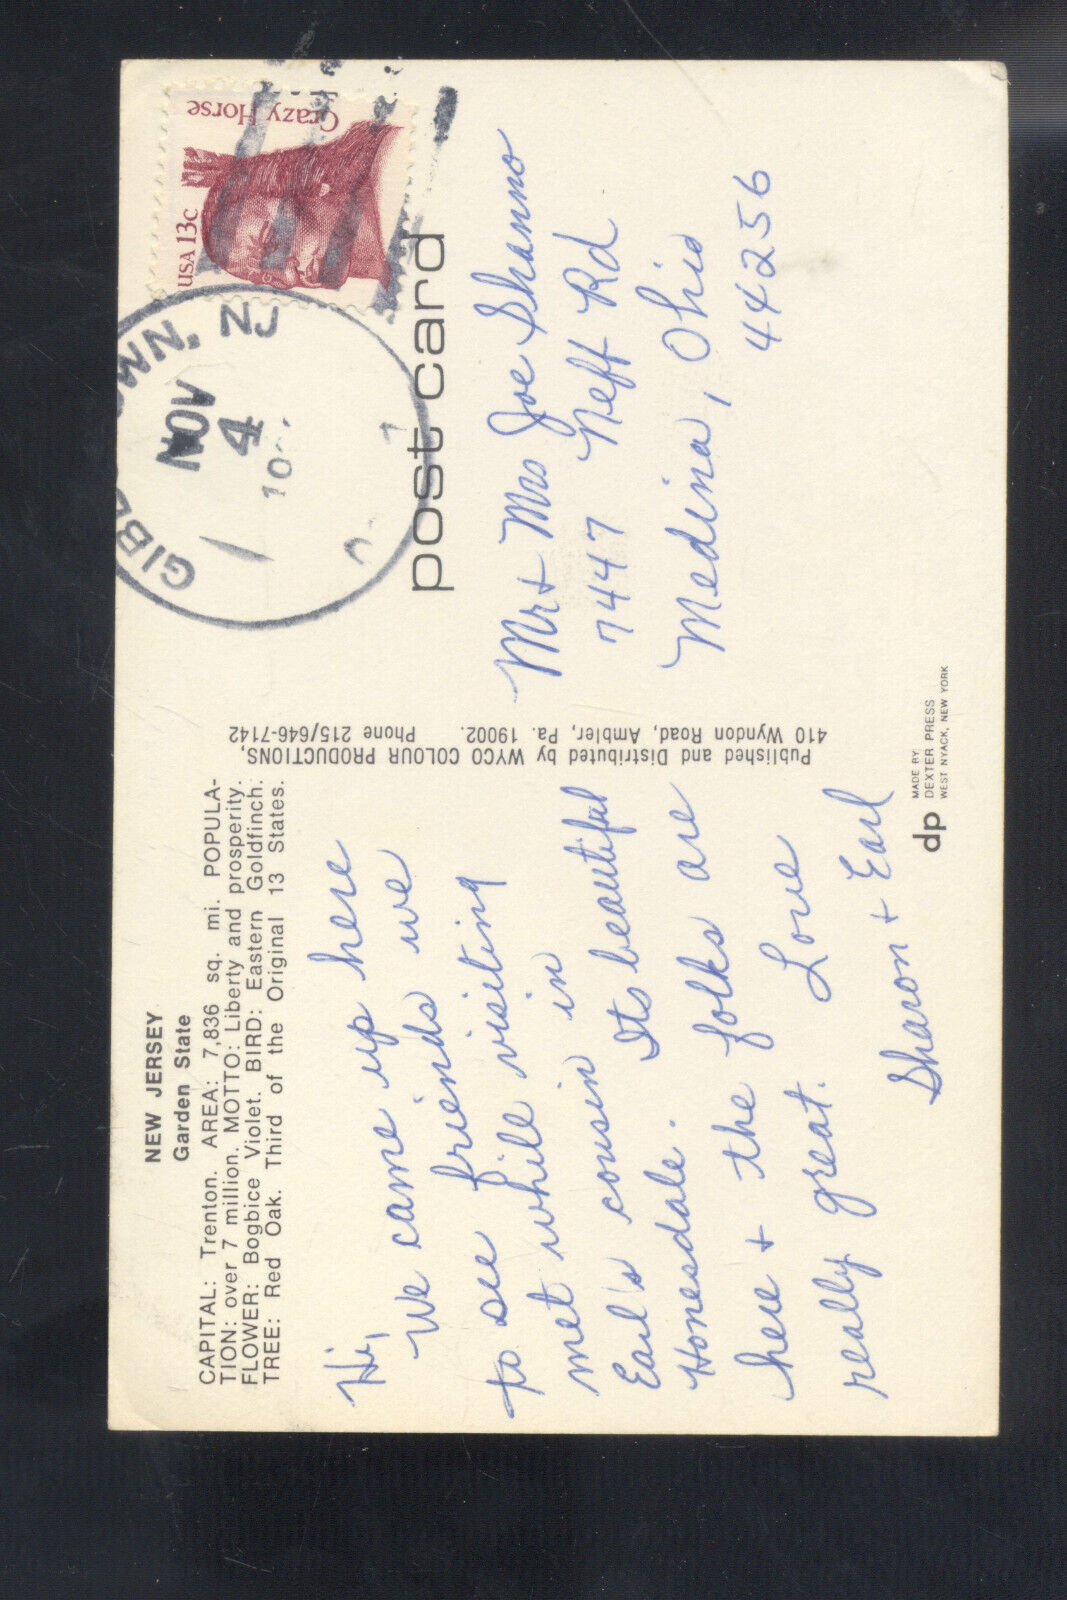 NEW JERSEY
Garden State
CAPITAL: Trenton. AREA: 7,836 sq. mi. POPULA-
TION: over 7 million. MOTTO: Liberty and prosperity.
FLOWER: Bogbice Violet. BIRD: Eastern Goldfinch.
TREE: Red Oak. Third of the Original 13 States.
Hi,
We came up here
to see friends we
met while visiting
Earl's cousin in
Honesdale. Its beautiful
here + the folks are
really great. Love
Sharon + Earl
Published and Distributed by WYCO COLOUR PRODUCTIONS,
410 Wyndon Road, Ambler, Pa. 19002. Phone 215/646-7142
USA 13c
Crazy Horse
NJ
NOV
4
post card
Mr + Mrs Joe Shanno
7447 Neff Rd
Medina, Ohio
44256
dp
MADE BY
DEXTER PRESS
WEST NYACK, NEW YORK